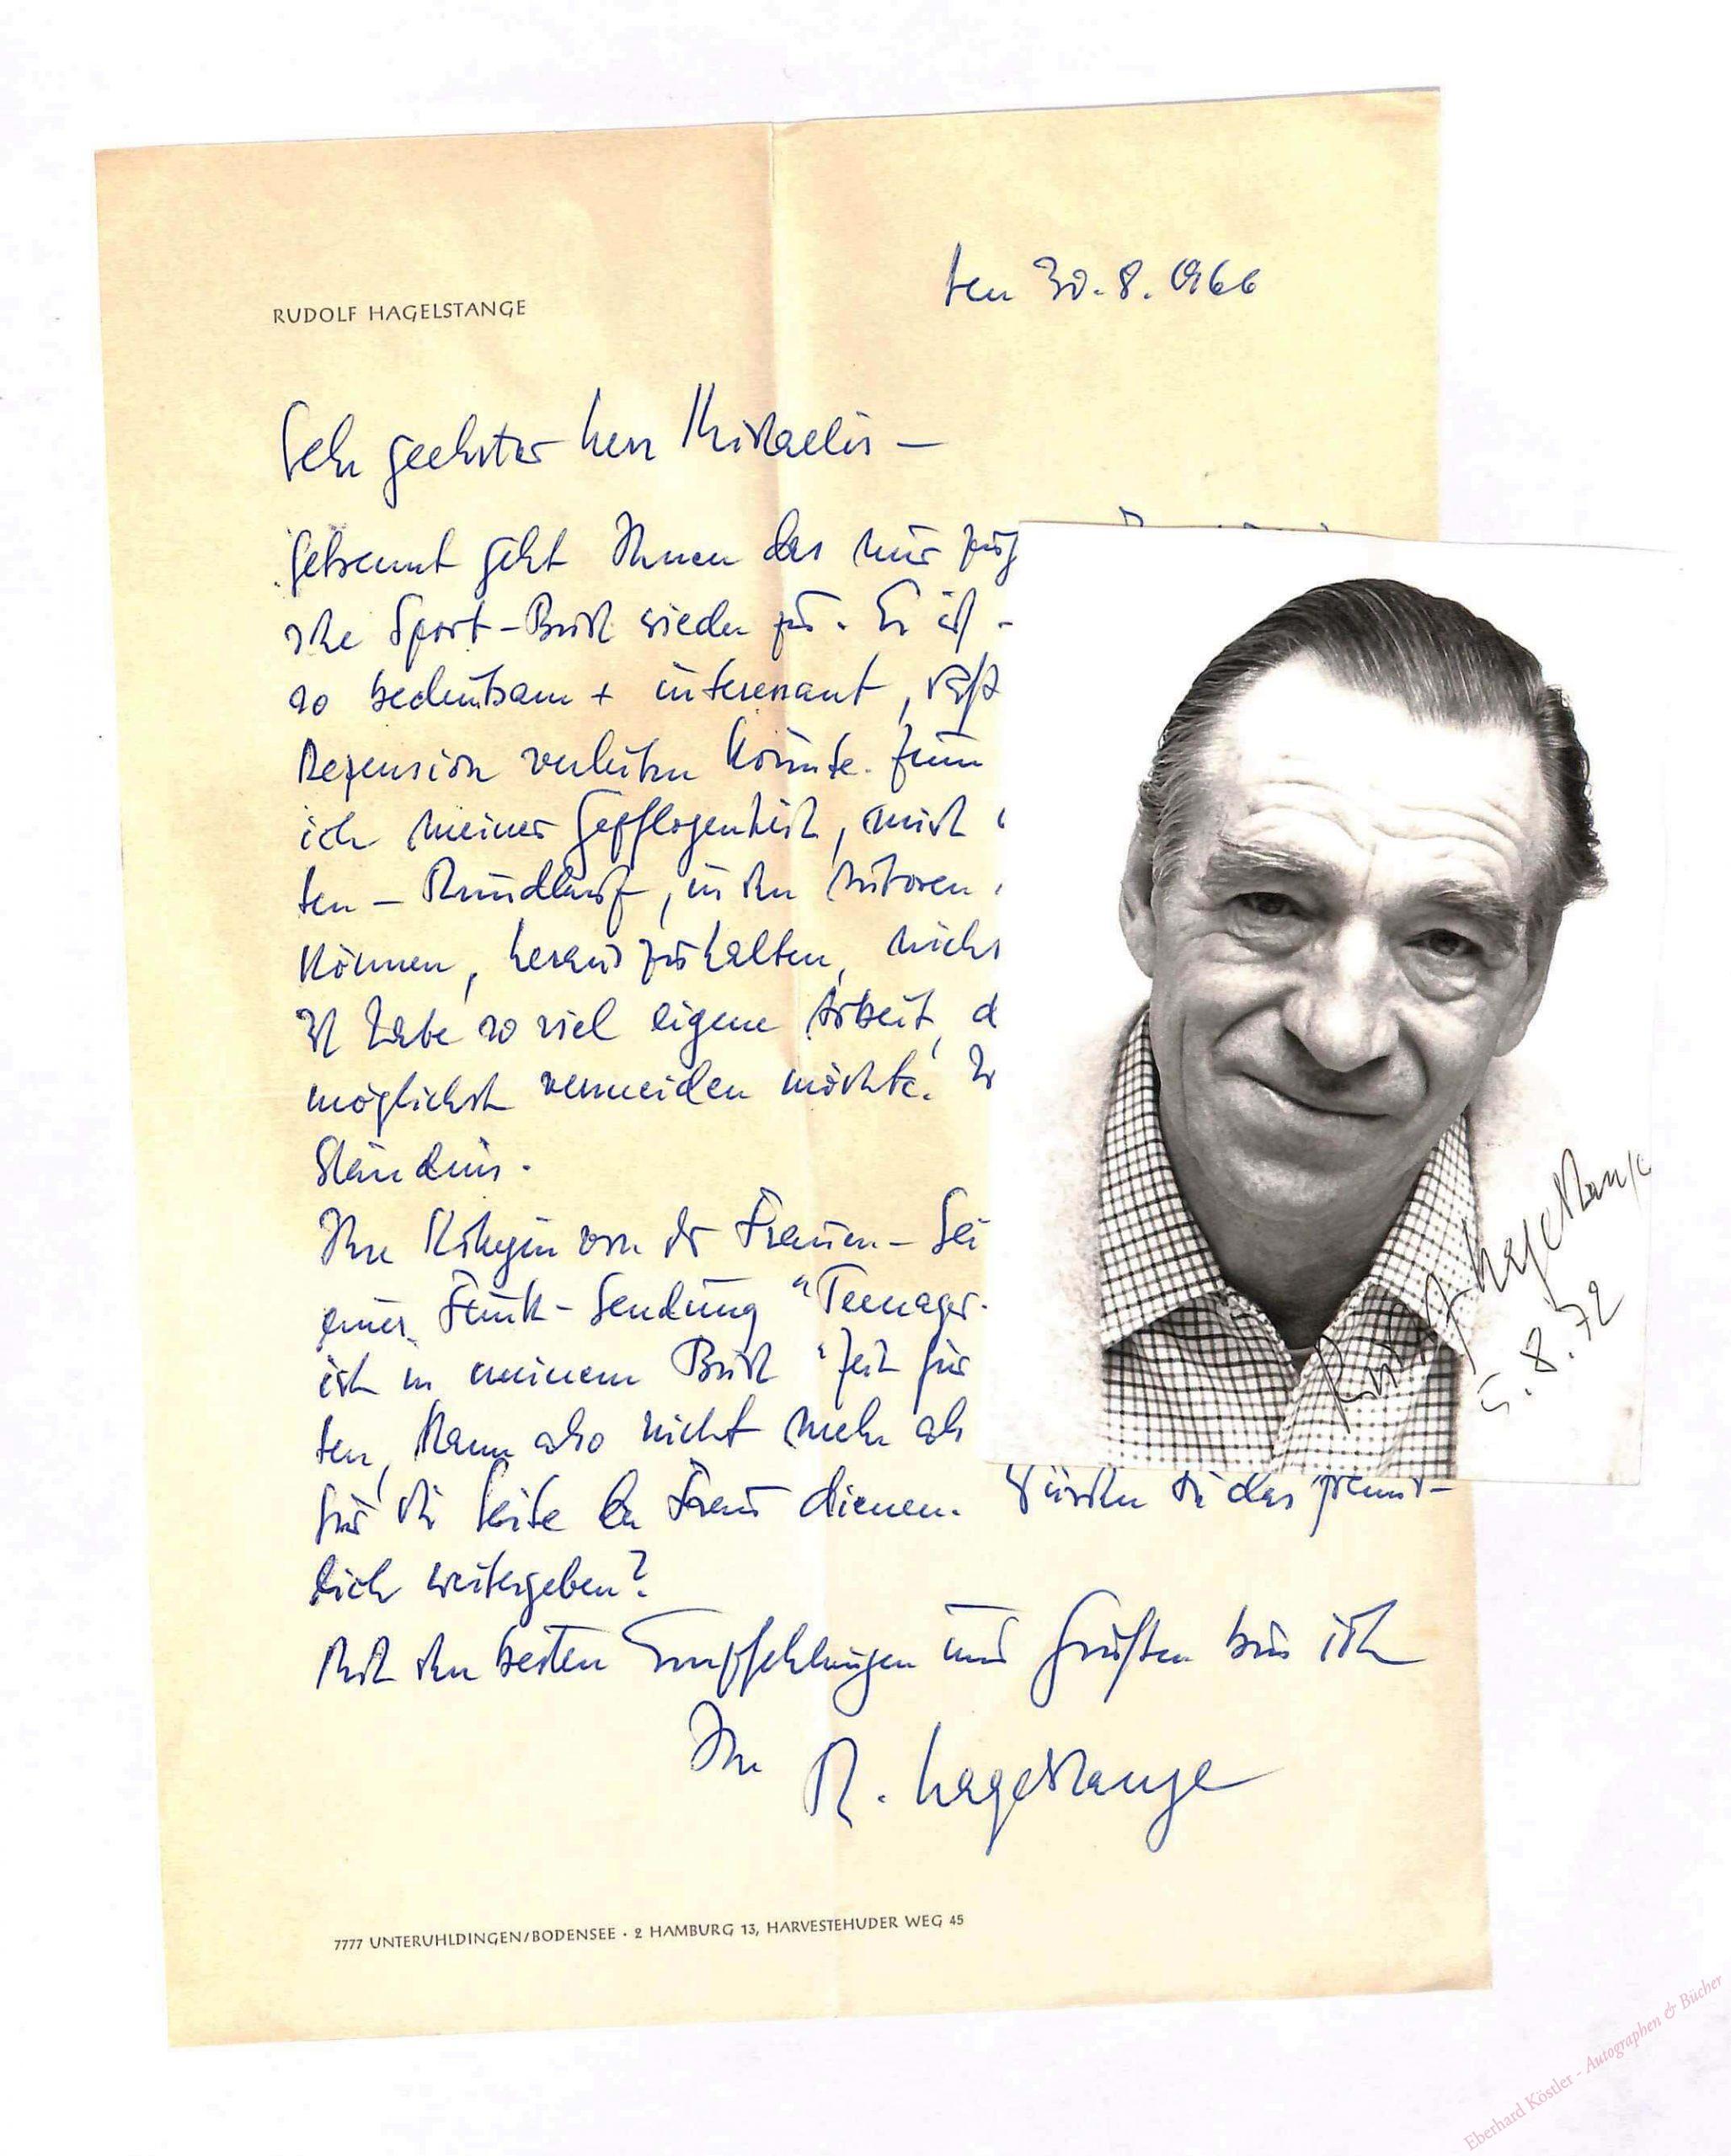 RUDOLF HAGELSTANGE
den 30.8.1966
Sehr geehrter Herr Michaelis –
getrennt geht Ihnen das mir zug
sche Sport-Buch wieder zu. Es ist -
so bedeutsam + interessant, daß
Rezension verleiten könnte. Zum
ich meiner Gepflogenheit, mich
ten – Rundlauf, in den Autoren
können, herauszuhalten, nicht
Ich habe so viel eigene Arbeit, d
möglichst vermeiden möchte.
Ständnis.
Ihre Kollegin von der Frauen-Sei
einer Funk-Sendung "Teenager
ich in meinem Buch "Zeit für
ten, kann also nicht mehr als
für die Seite der Frau dienen. Würden Sie das freund-
lich weitergeben?
Mit den besten Empfehlungen und Grüßen bin ich
Ihr R. Hagelstange
Rudolf Hagelstange
5.8.72
7777 UNTERUHLDINGEN/BODENSEE · 2 HAMBURG 13, HARVESTEHUDER WEG 45
Eberhard Köstler - Autographen & Bücher